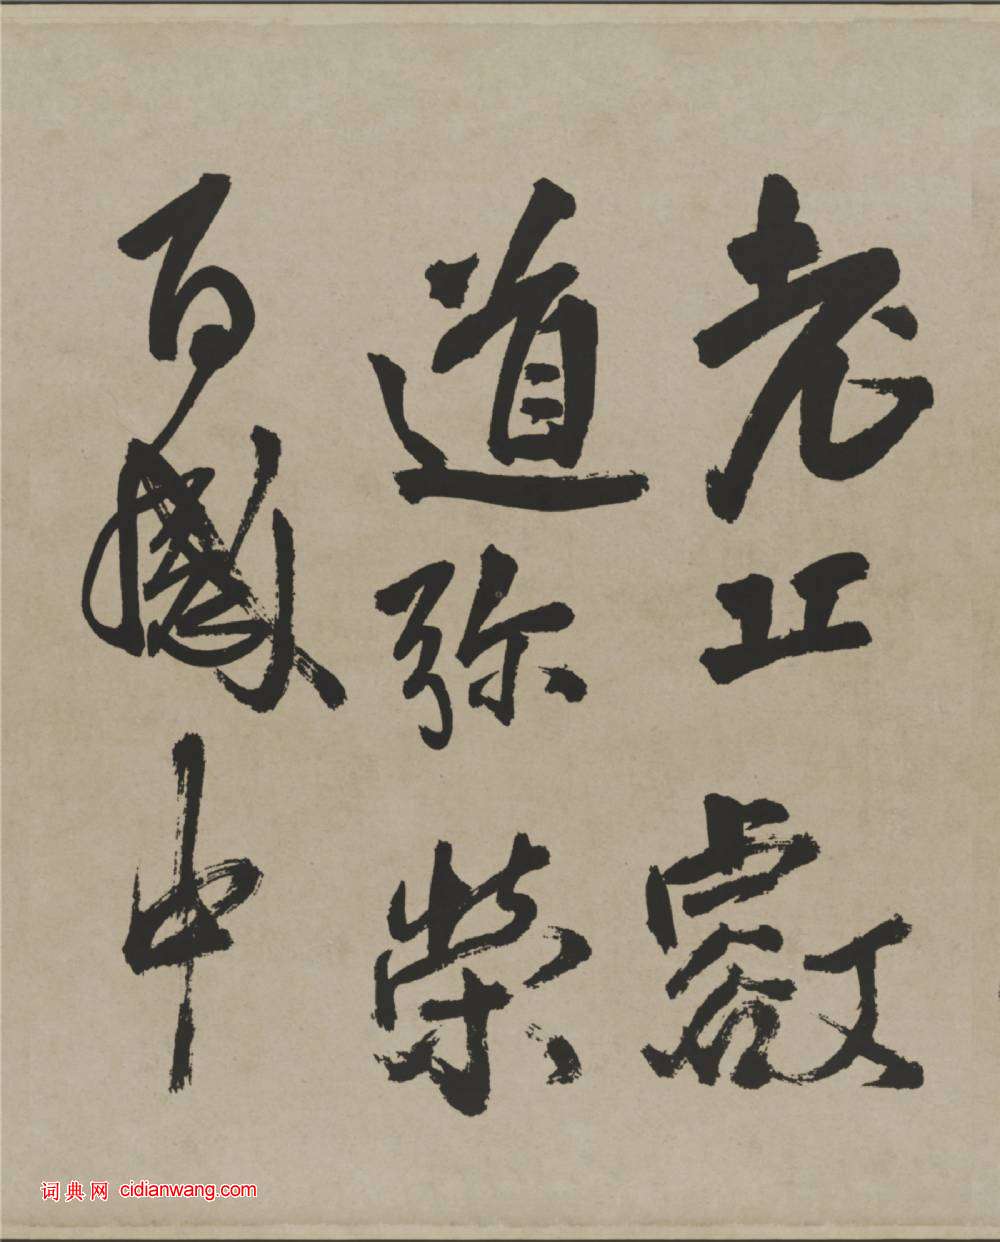 老丘壑
道弥荣
百感中
词典网 cidianwang.com